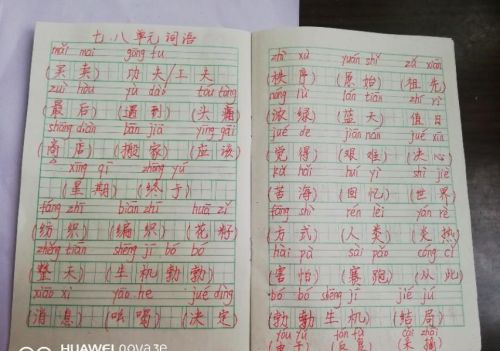 七、八单元词语
mǎi mai gōng fu
(买卖) 功夫/工夫
zuì hòu yù dào tóu tòng
(最后) (遇到) (头痛)
shāng diàn bān jiā yīng gāi
(商店) (搬家) (应该)
xīng qī zhōng yú
(星期) (终于)
fǎng zhī biān zhī huā zǐ
(纺织) (编织) (花籽)
zhěng tiān shēng jī bó bó
(整天) (生机勃勃)
xiāo xi yāo he jué dìng
(消息) (吆喝) (决定)
zhì xù yuán shǐ zǔ xiān
(秩序) (原始) (祖先)
nóng lǜ lán tiān zhí rì
(浓绿) (蓝天) (值日)
jué de jiān nán jué xīn
(觉得) (艰难) (决心)
kǔ hǎi huí yì shì jiè
(苦海) (回忆) (世界)
fāng shì rén lèi yán rè
(方式) (人类) (炎热)
hài pà sài pǎo cóng cǐ
(害怕) (赛跑) (从此)
bó bó shēng jī jié jú
(勃勃生机) (结局)
HUAWEI nova 3e